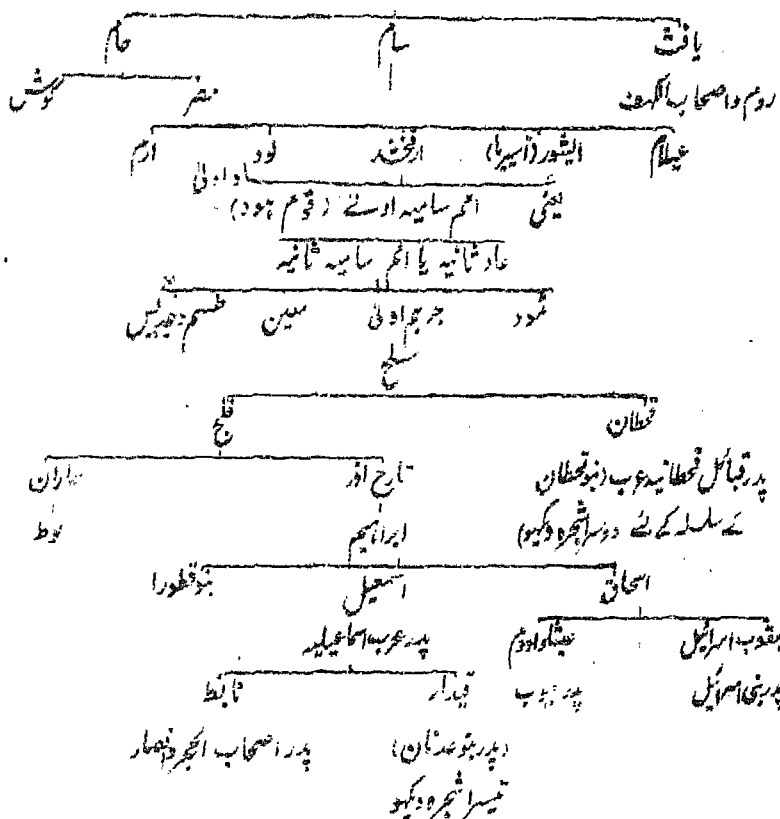 یافث سام حام
روم واصحاب الکہف مصر کوش
عیلام اشور (اسیریا) ارفخشد لود ارم
یعنی عاد اولیٰ
امم سامیہ اولے (قوم ہود)
عاد ثانیہ یا امم سامیہ ثانیہ
ثمود جرہم اولیٰ معین طسم وجدیس
سلح
قحطان فلج
پدر قبائل قحطانیہ عرب (بنو قحطان تارح اذر ہاران
کے سلسلہ کے لئے دوسرا شجرہ دیکھو) ابراہیم لوط
اسحاق اسمعیل بنو قطورا
یعقوب اسرائیل عیشا وادوم پدر عرب اسماعیلیہ
پدر بنی اسرائیل پدر قیدار نابط
(پدر بنو عدنان) پدر اصحاب الحجر وانصار
تیسرا شجرہ دیکھو